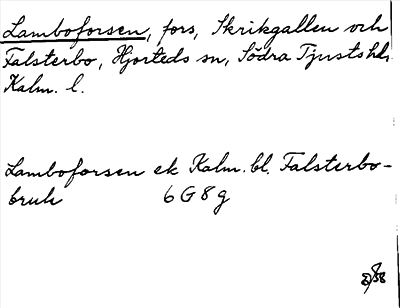 Lamboforsen, fors, Skrikgallen och
Falsterbo, Hjorteds sn, Södra Tjusts hd,
Kalm. l.
Lamboforsen ek Kalm. bl. Falsterbo-
bruk 6 G 8 g